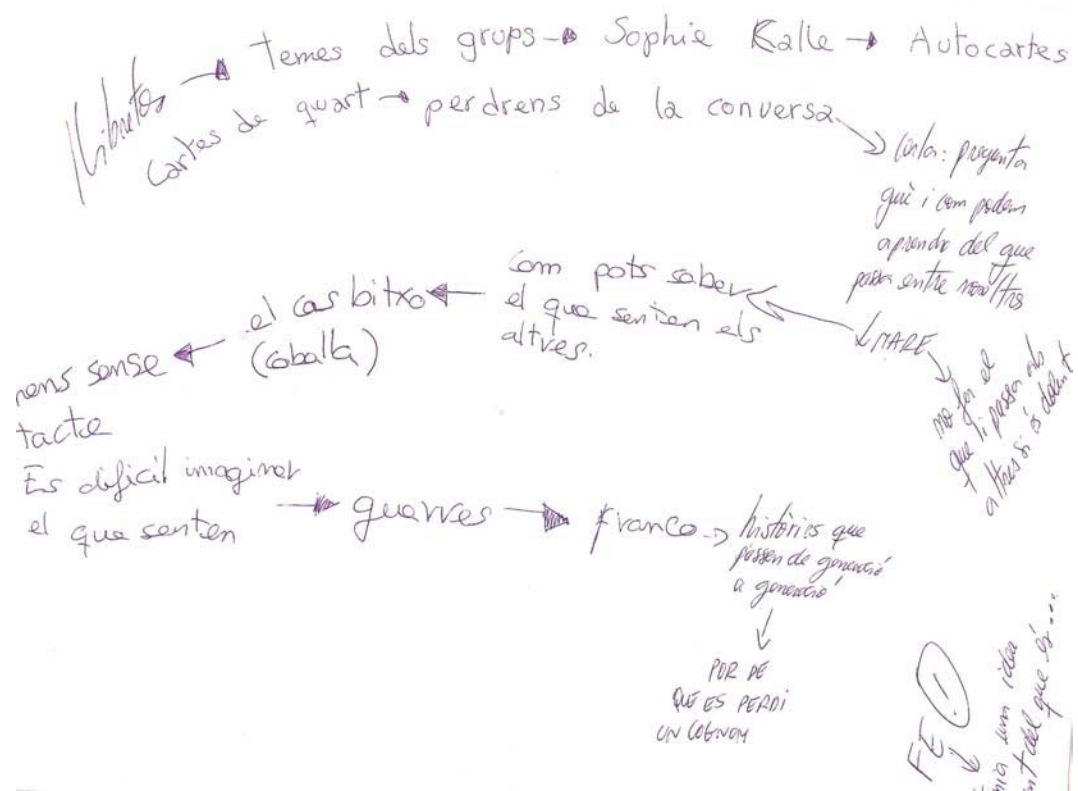 Llibretes → Temes dels grups → Sophie Kalle → Autocartes
Cartes de quart → perdrens de la conversa
Carla: pregunta
què i com podem
aprendre del que
passa entre nosaltres
MARE
no fer el
què li passa als
altres si és dolent
Com pots saber
el que senten els
altres.
el cas bitxo
(coballa)
nens sense
tacte
Es dificil imaginar
el que senten
→ guerres → franco → històries que
passen de generació
a generació
POR DE
QUE ES PERDI
UN COGNOM
FE !
una idea
del que és...